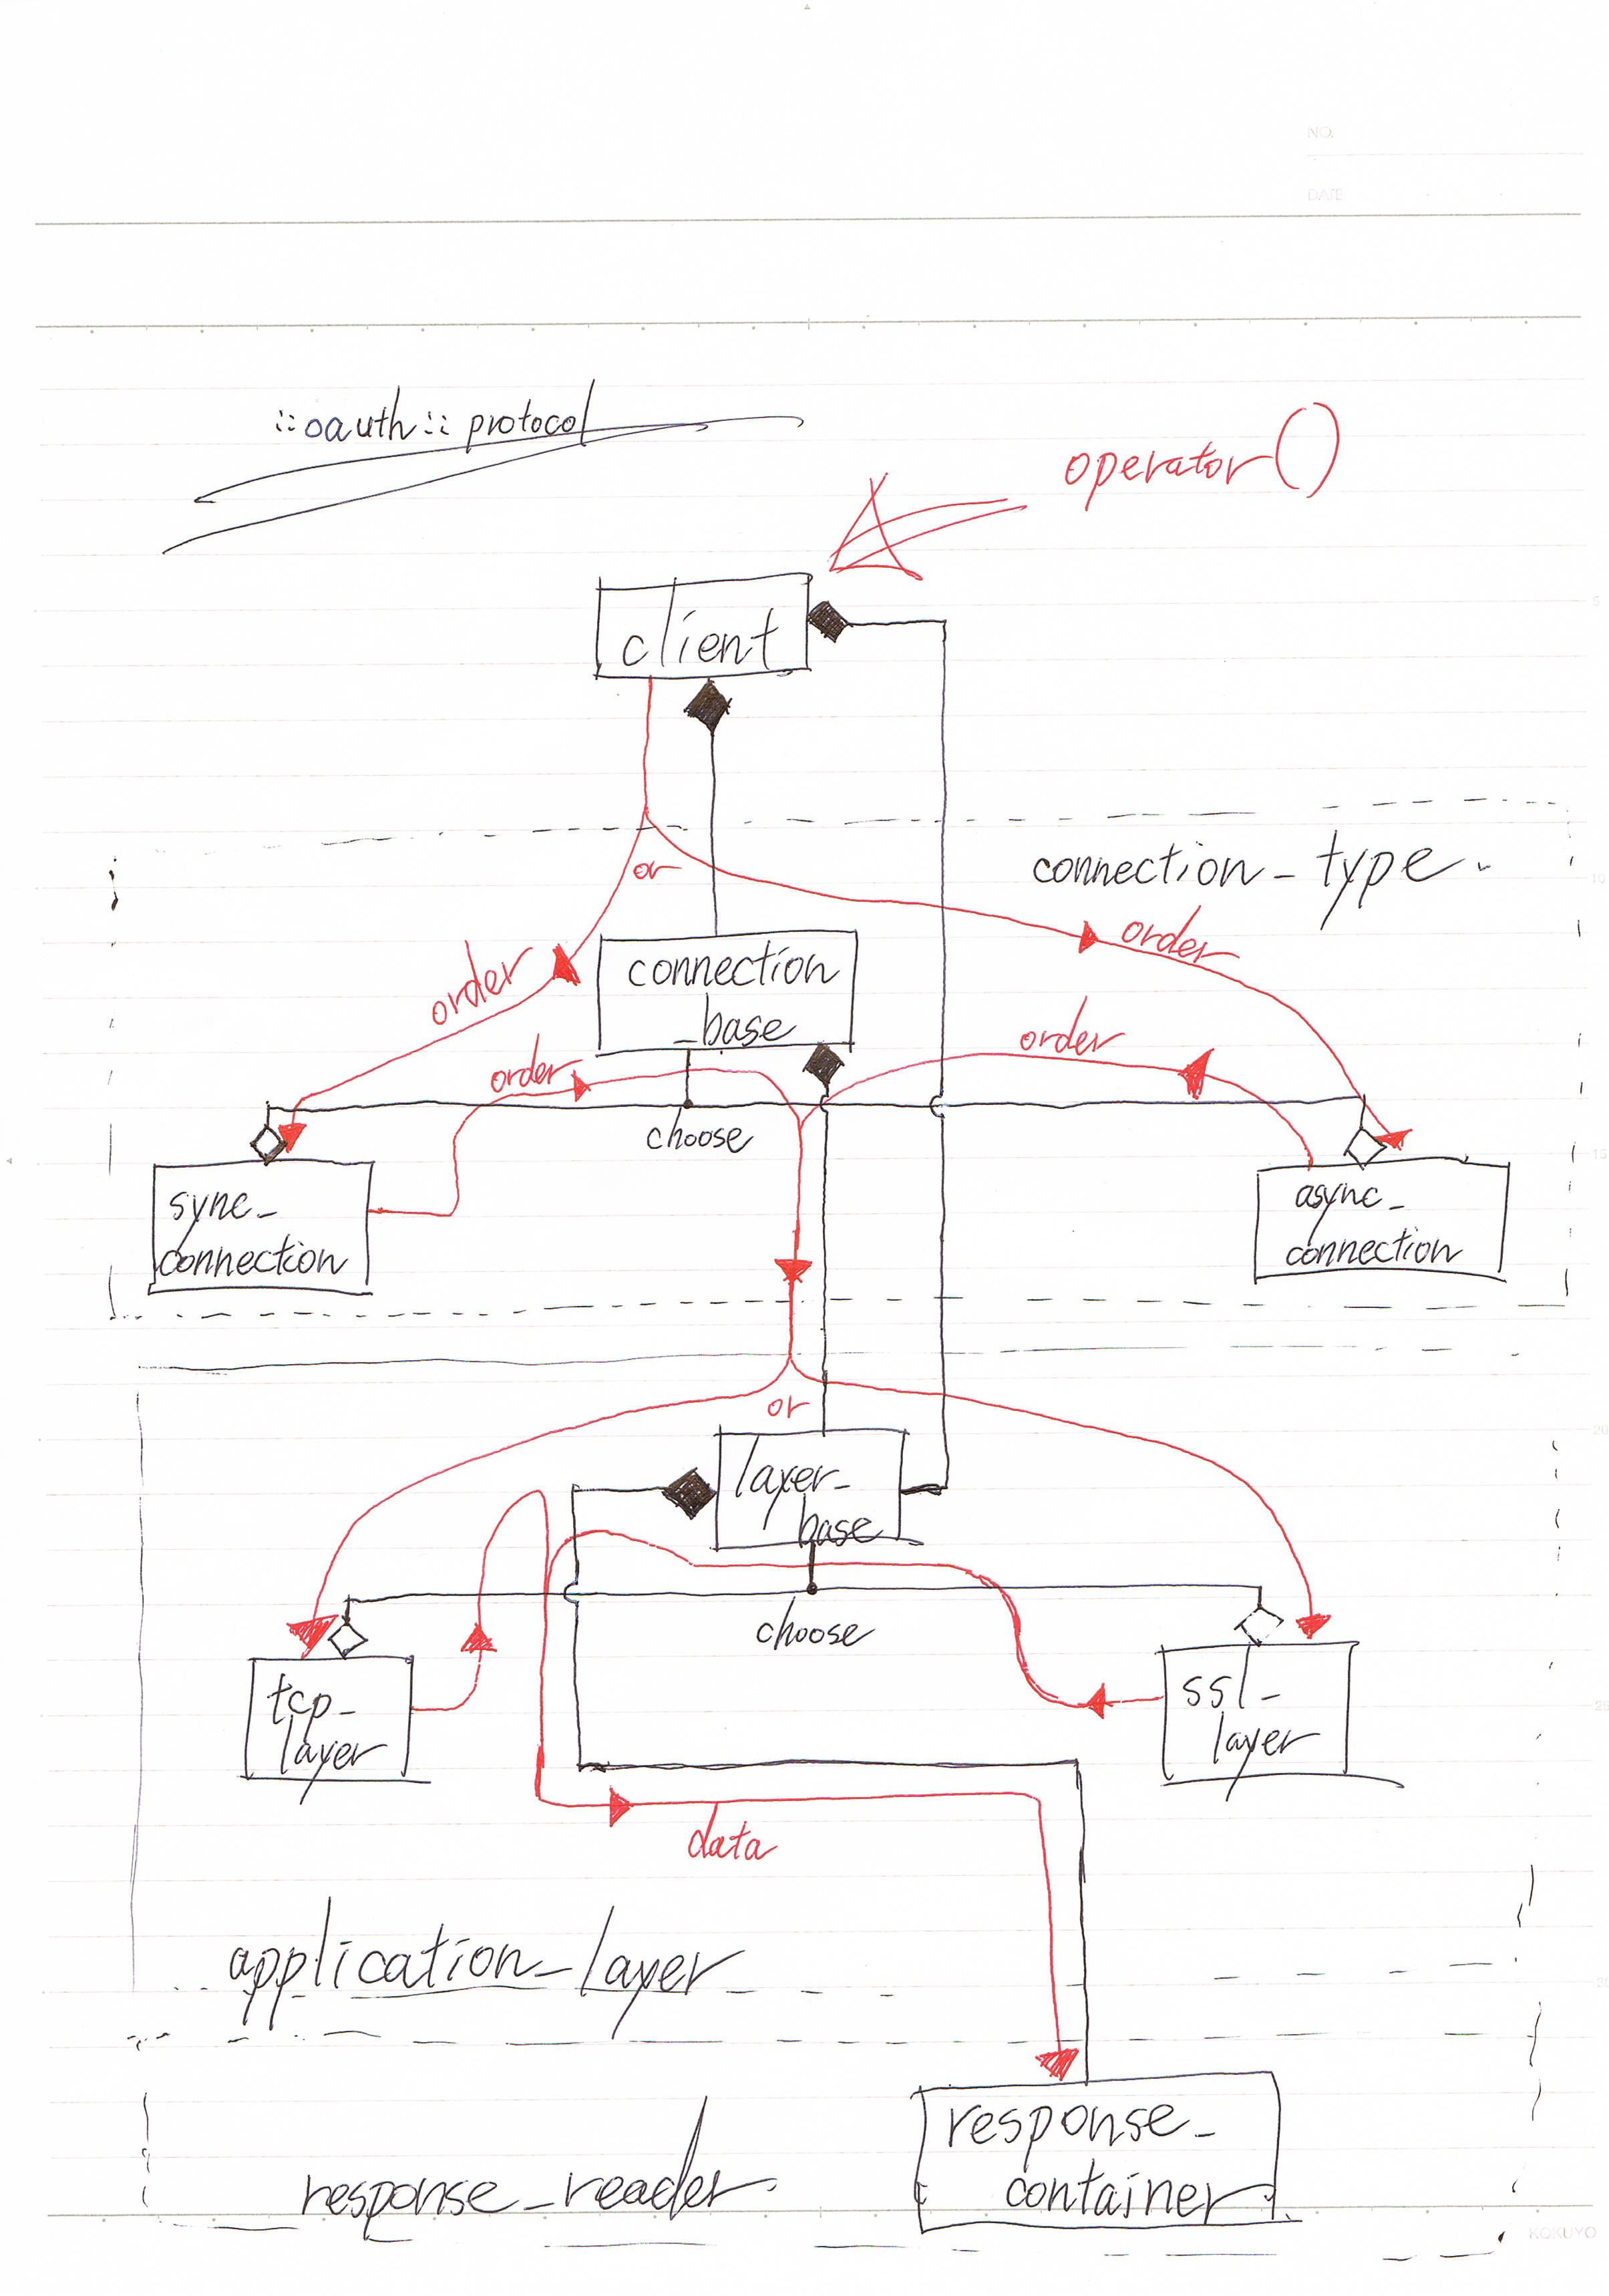 NO.
DATE
::oauth::protocol
operator()
client
or
connection_type
order
order
connection
_base
order
order
choose
sync_
connection
async_
connection
or
layer_
base
choose
tcp_
layer
ssl_
layer
data
application_layer
response_
container
response_reader
5
10
15
20
25
30
KOKUYO